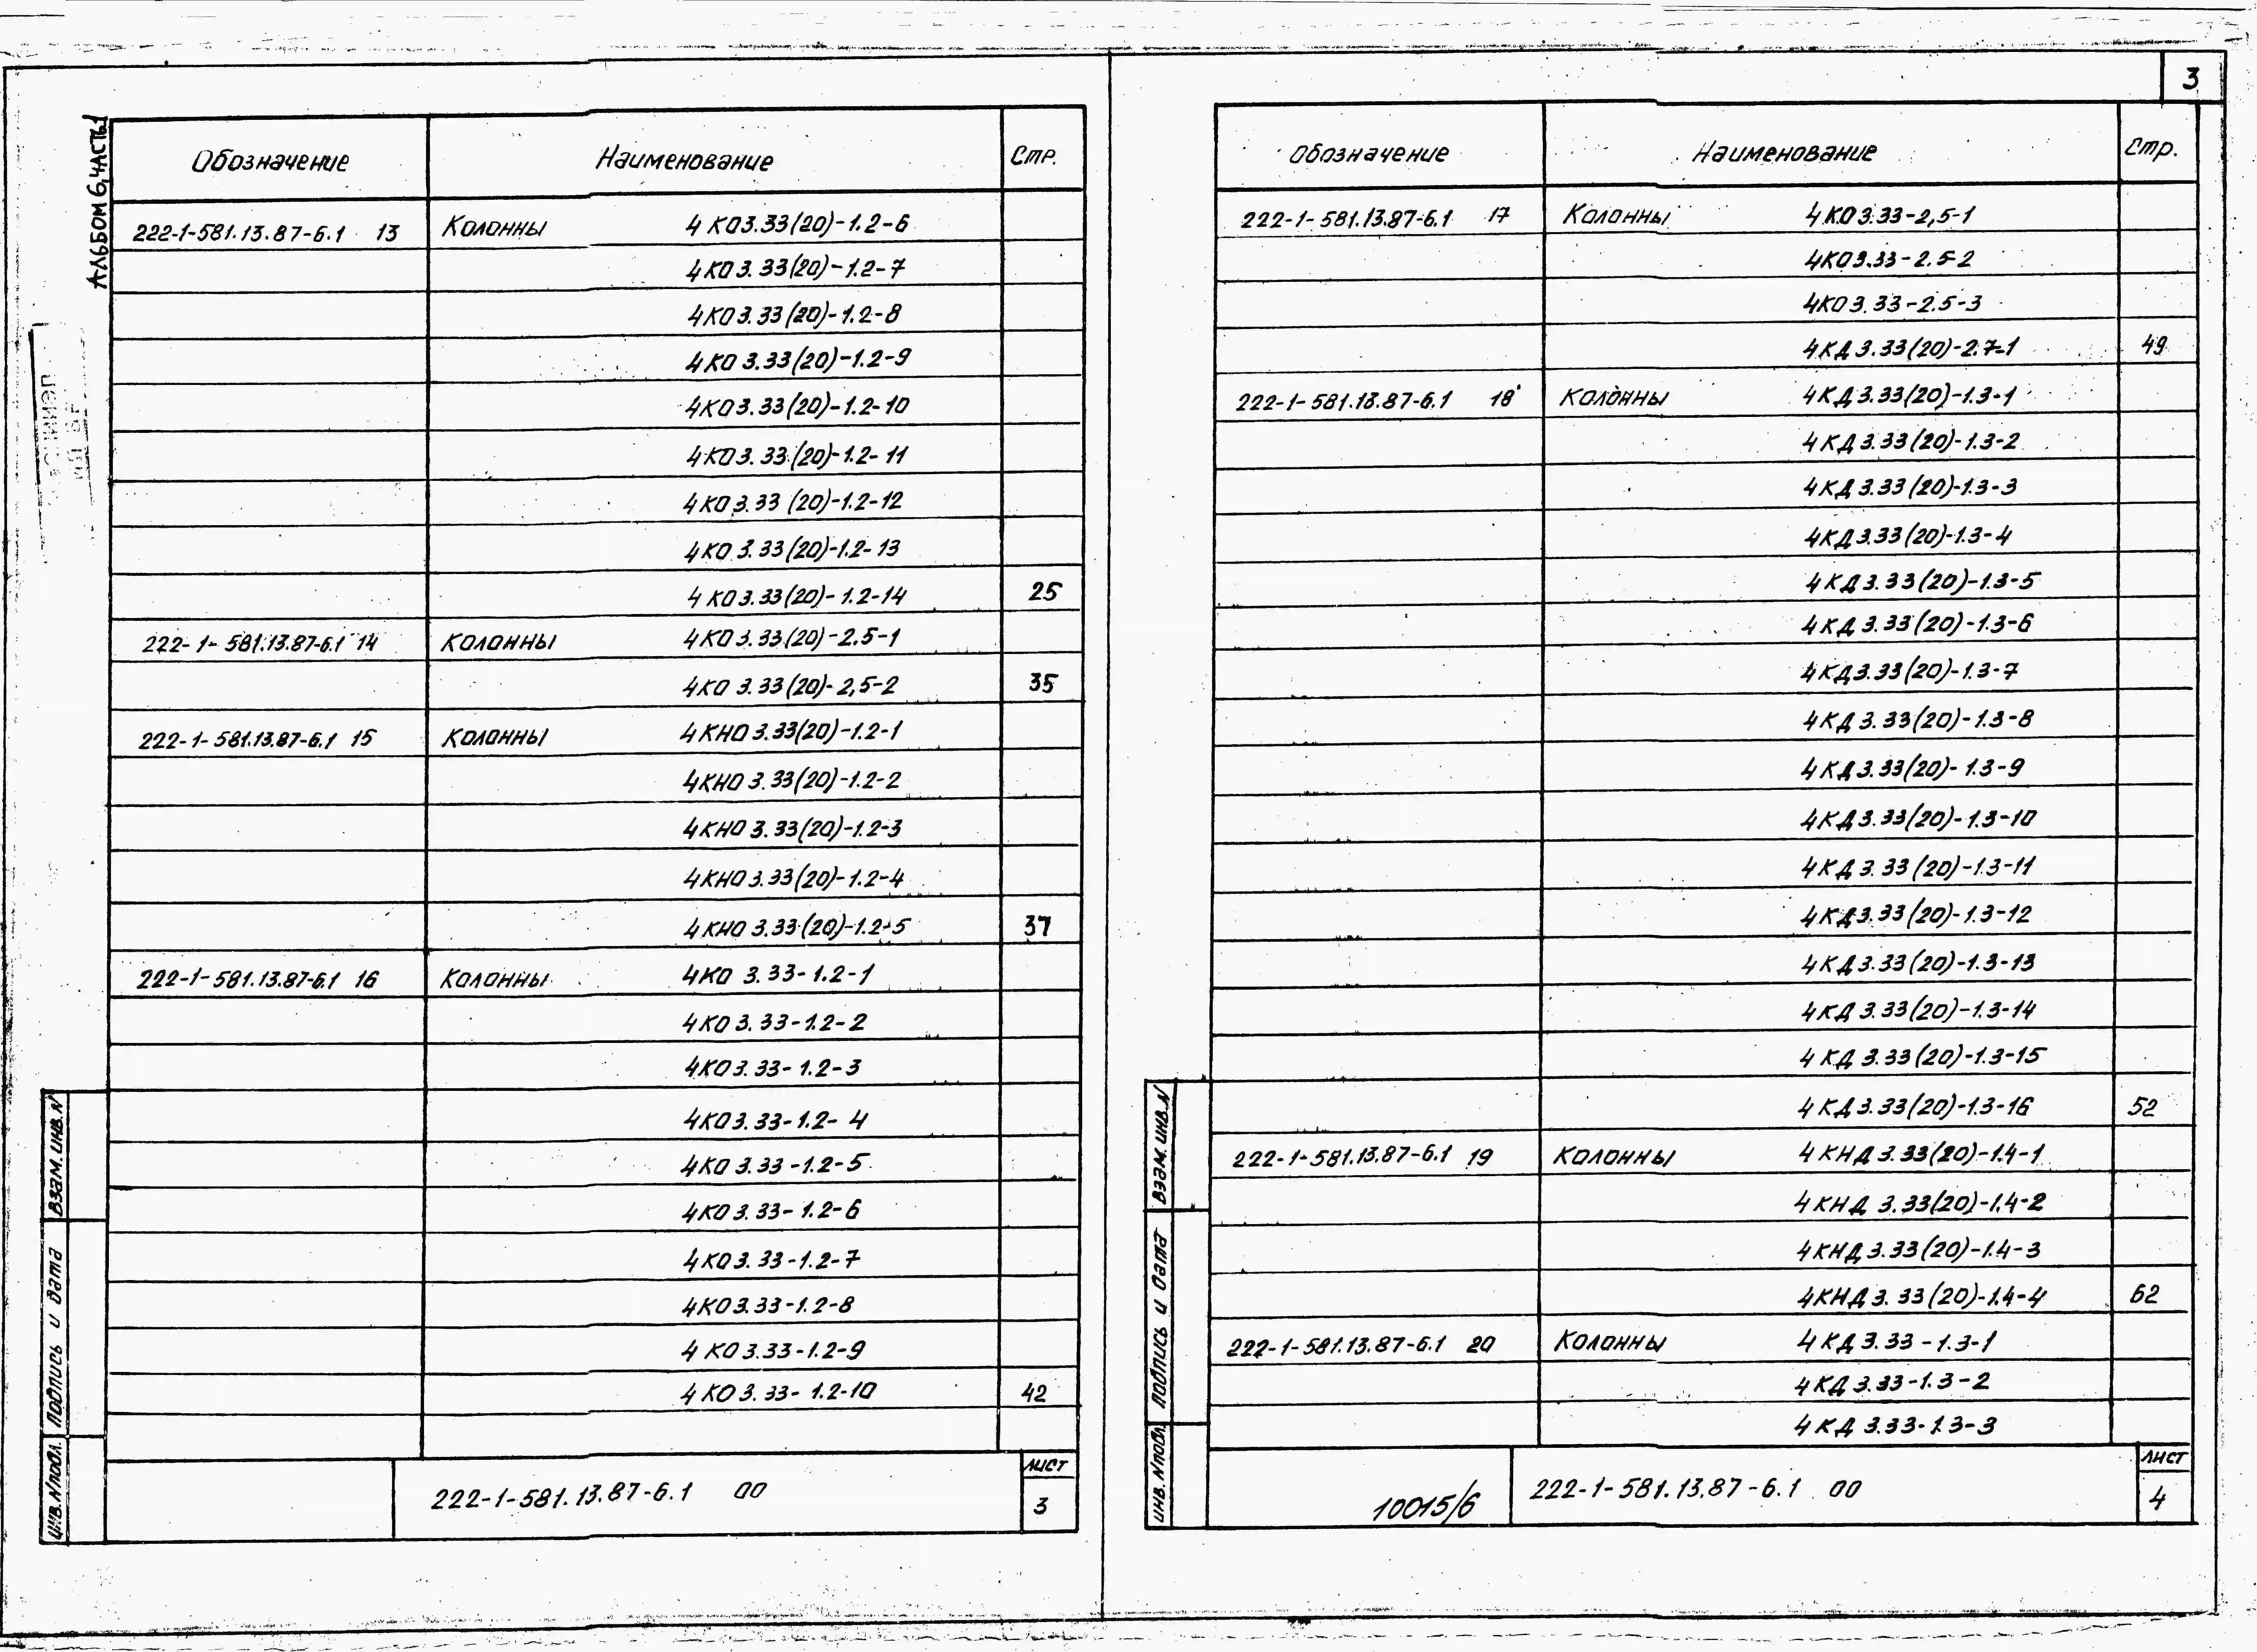 3
Альбом 6, часть 1
Обозначение Наименование Стр.
222-1-581.13.87-6.1 13 Колонны 4КО3.33(20)-1.2-6
4КО3.33(20)-1.2-7
4КО3.33(20)-1.2-8
4КО3.33(20)-1.2-9
4КО3.33(20)-1.2-10
4КО3.33(20)-1.2-11
4КО3.33(20)-1.2-12
4КО3.33(20)-1.2-13
4КО3.33(20)-1.2-14 25
222-1-581.13.87-6.1 14 Колонны 4КО3.33(20)-2.5-1
4КО3.33(20)-2,5-2 35
222-1-581.13.87-6.1 15 Колонны 4КНО3.33(20)-1.2-1
4КНО3.33(20)-1.2-2
4КНО3.33(20)-1.2-3
4КНО3.33(20)-1.2-4
4КНО3.33(20)-1.2-5 37
222-1-581.13.87-6.1 16 Колонны 4КО3.33-1.2-1
4КО3.33-1.2-2
4КО3.33-1.2-3
4КО3.33-1.2-4
4КО3.33-1.2-5
4КО3.33-1.2-6
4КО3.33-1.2-7
4КО3.33-1.2-8
4КО3.33-1.2-9
4КО3.33-1.2-10 42
222-1-581.13.87-6.1 00 Лист 3
Взам. инв. N
Подпись и дата
Инв. N подл.
Обозначение Наименование Стр.
222-1-581.13.87-6.1 17 Колонны 4КО3.33-2,5-1
4КО3.33-2.5-2
4КО3.33-2.5-3
4КД3.33(20)-2.7-1 49
222-1-581.13.87-6.1 18 Колонны 4КД3.33(20)-1.3-1
4КД3.33(20)-1.3-2
4КД3.33(20)-1.3-3
4КД3.33(20)-1.3-4
4КД3.33(20)-1.3-5
4КД3.33(20)-1.3-6
4КД3.33(20)-1.3-7
4КД3.33(20)-1.3-8
4КД3.33(20)-1.3-9
4КД3.33(20)-1.3-10
4КД3.33(20)-1.3-11
4КД3.33(20)-1.3-12
4КД3.33(20)-1.3-13
4КД3.33(20)-1.3-14
4КД3.33(20)-1.3-15
4КД3.33(20)-1.3-16 52
222-1-581.13.87-6.1 19 Колонны 4КНД3.33(20)-1.4-1
4КНД3.33(20)-1.4-2
4КНД3.33(20)-1.4-3
4КНД3.33(20)-1.4-4 62
222-1-581.13.87-6.1 20 Колонны 4КД3.33-1.3-1
4КД3.33-1.3-2
4КД3.33-1.3-3
10015/6 222-1-581.13.87-6.1 00 Лист 4
Взам. инв. N
Подпись и дата
Инв. N подл.